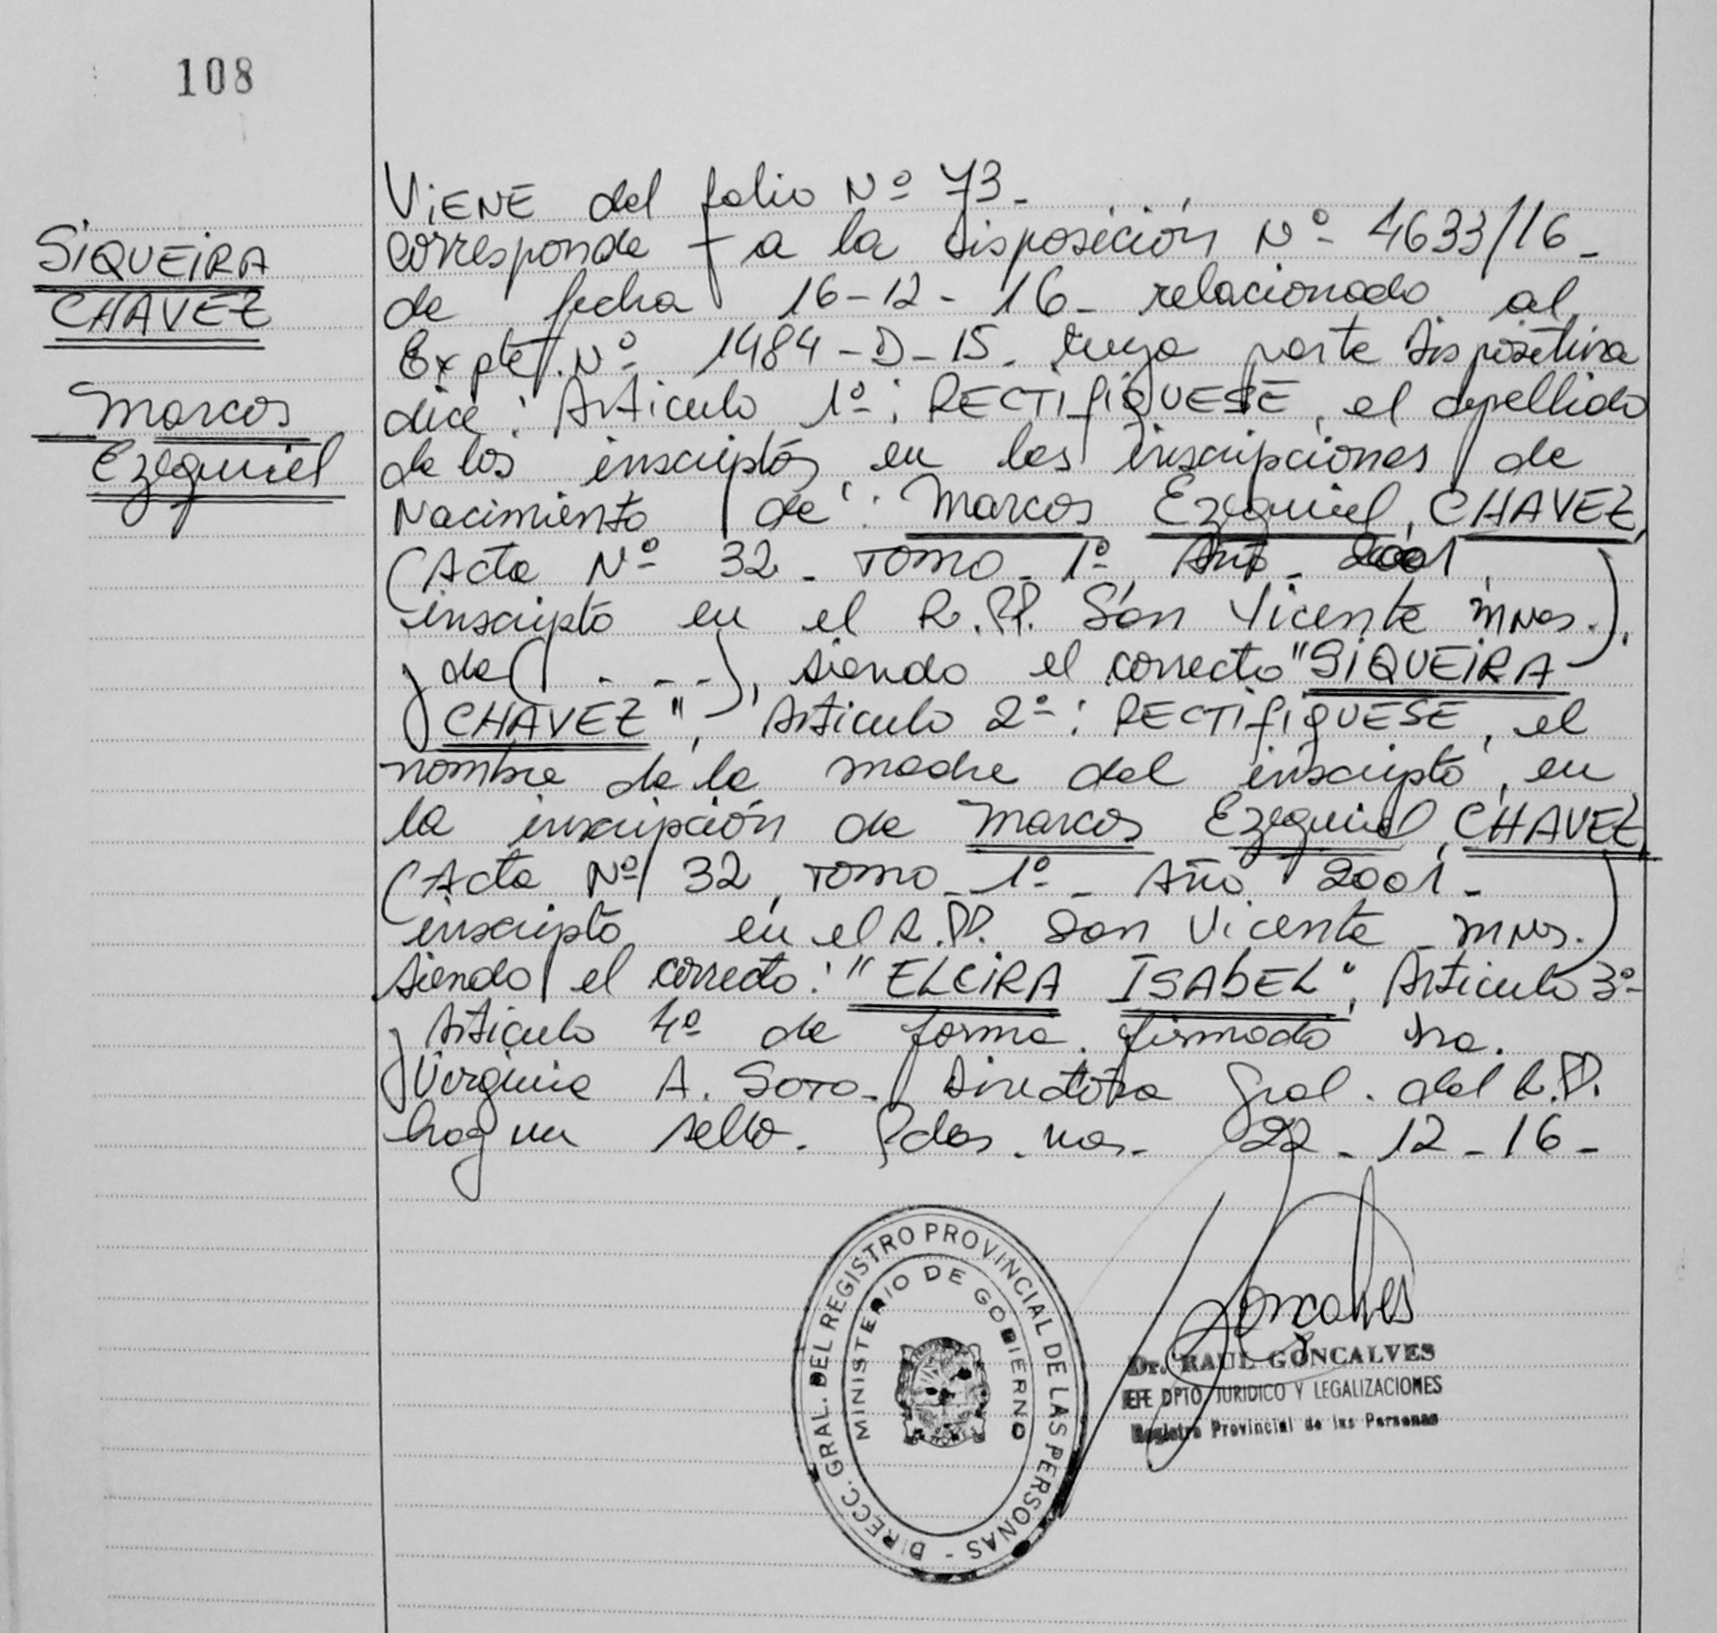 108
SIQUEIRA
CHAVEZ
Marcos
Ezequiel
VIENE del folio Nº 73.
corresponde a la disposición Nº 4633/16-
de fecha 16-12-16- relacionado al
Expte. Nº 1484-D-15. cuya parte dispositiva
dice: Artículo 1º: RECTIFIQUESE, el apellido
de los inscriptos en las inscripciones de
Nacimiento de: Marcos Ezequiel, CHAVEZ,
(Acta Nº 32 - Tomo - 1º Año - 2001,
inscripto en el R.PP. San Vicente Mnes.).
y de (- - - -), siendo el correcto "SIQUEIRA
CHAVEZ", Artículo 2º: RECTIFIQUESE, el
nombre de la madre del inscripto, en
la inscripción de Marcos Ezequiel, CHAVEZ,
(Acta Nº 32, Tomo - 1º - Año 2001-
inscripto en el R.PP. San Vicente - Mnes.)
siendo el correcto: "ELCIRA ISABEL", Artículo 3º-
y Artículo 4º de forma. firmado Sra.
Virginia A. Soto- Directora Gral. del R.PP.
hay un sello. Pdas. Mnes. 22-12-16-
DIRECC. GRAL. DEL REGISTRO PROVINCIAL DE LAS PERSONAS -
MINISTERIO DE GOBIERNO
Goncalves
Dr. RAUL GONCALVES
JEFE DPTO. JURIDICO Y LEGALIZACIONES
Registro Provincial de las Personas